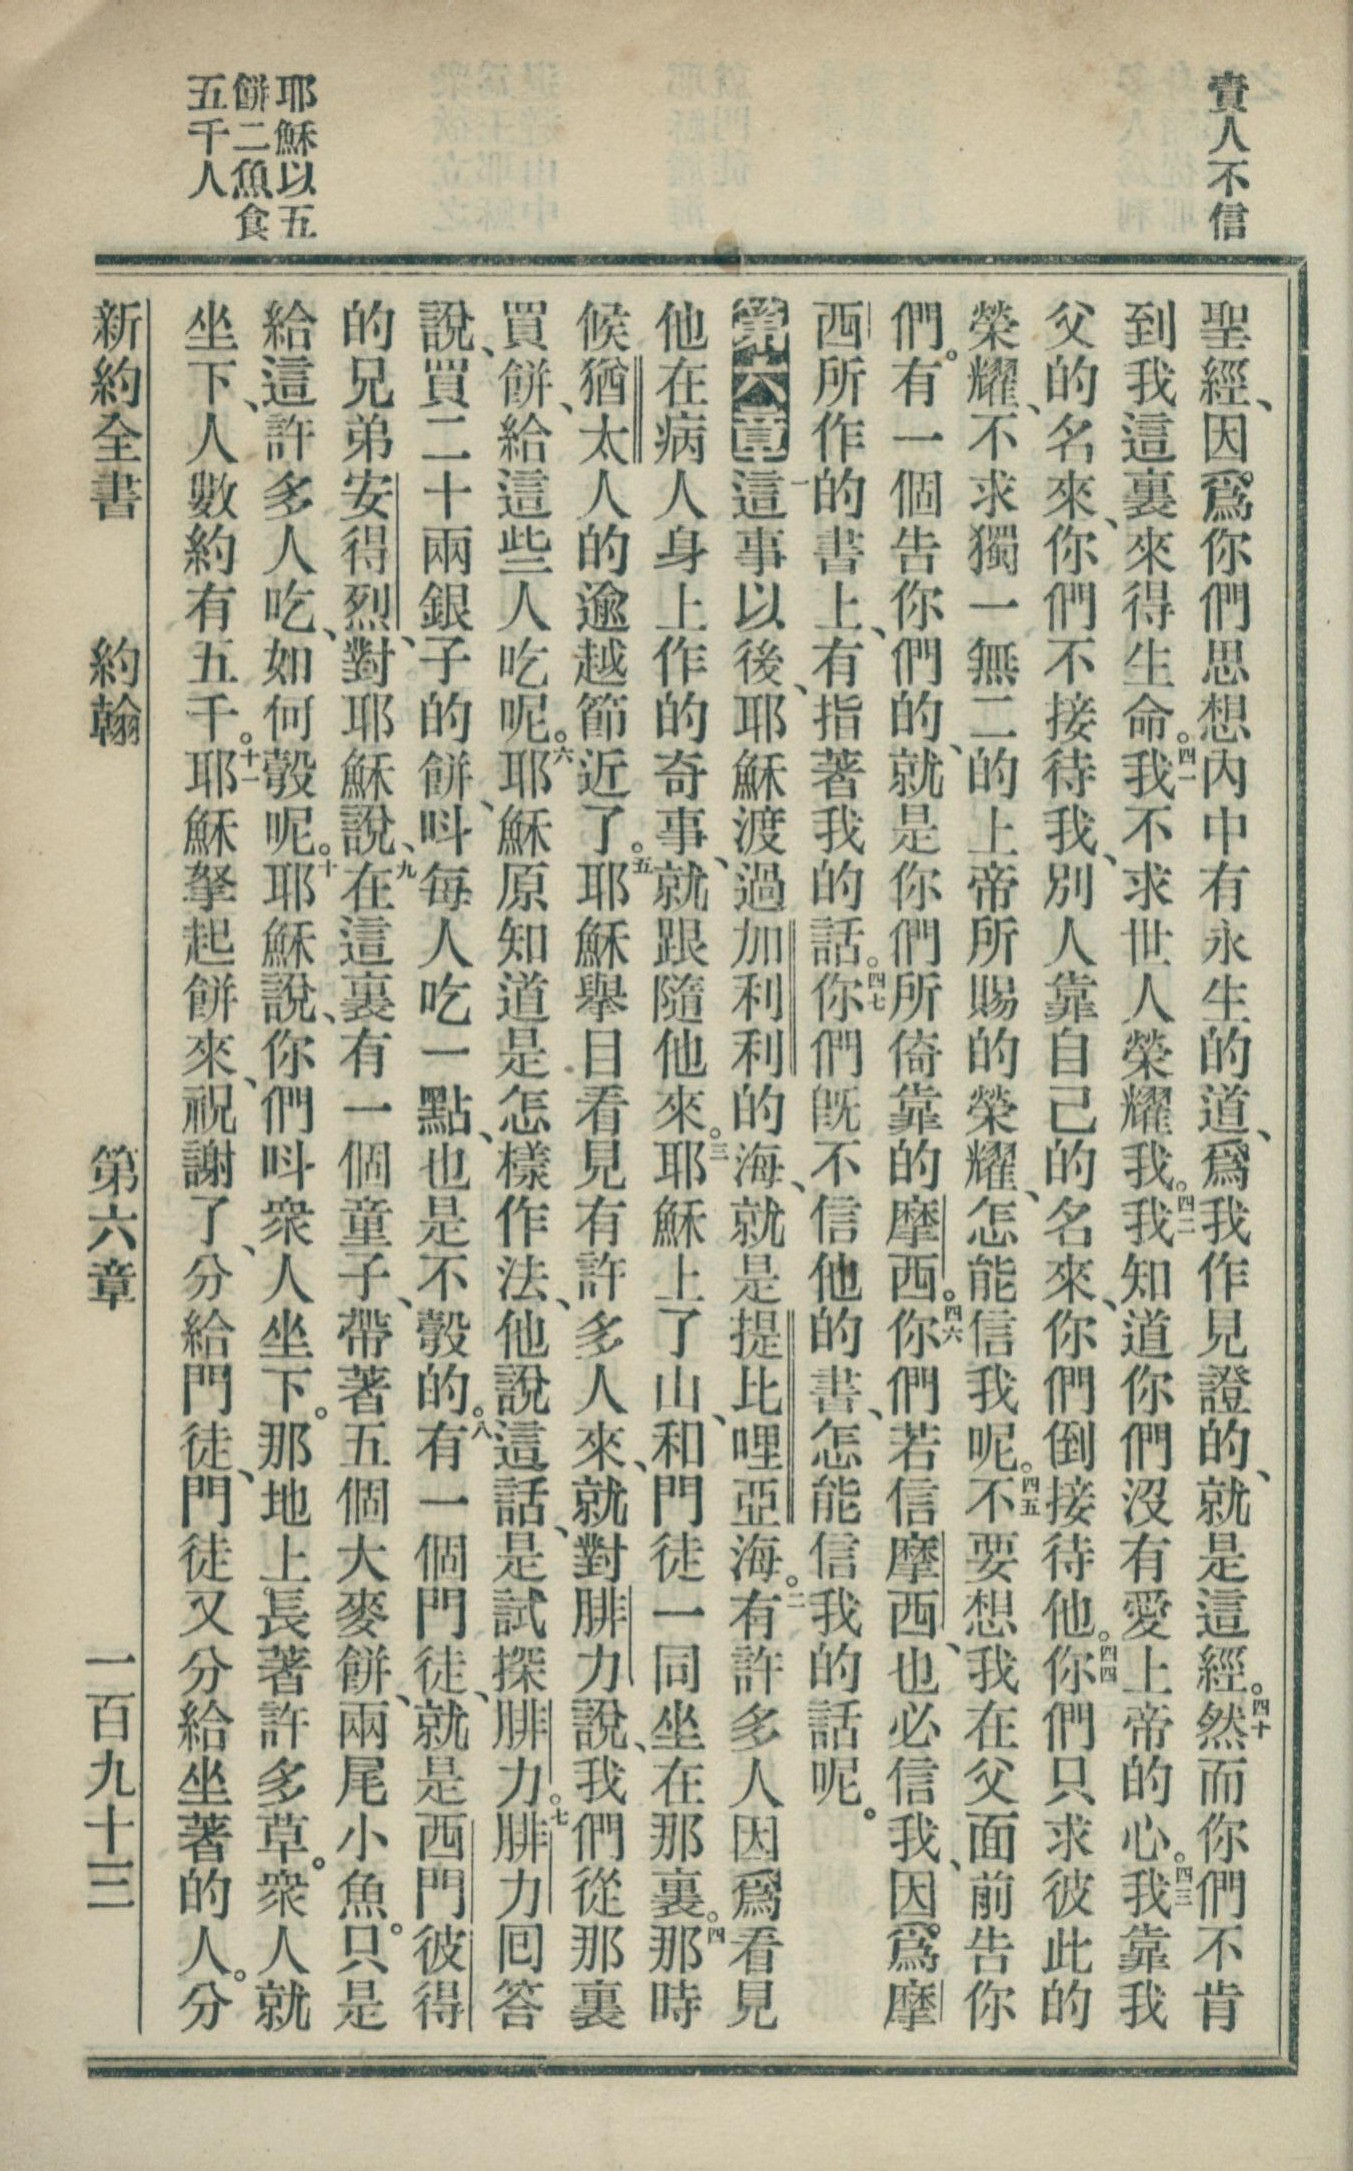 責人不信
耶穌以五
餅二魚食
五千人
聖經、因爲你們思想內中有永生的道、爲我作見證的、就是這經。四十然而你們不肯
到我這裏來得生命。四一我不求世人榮耀我。四二我知道你們沒有愛上帝的心。四三我靠我
父的名來、你們不接待我、別人靠自己的名來、你們倒接待他。四四你們只求彼此的
榮耀、不求獨一無二的上帝所賜的榮耀、怎能信我呢。四五不要想我在父面前告你
們。有一個告你們的、就是你們所倚靠的摩西。四六你們若信摩西、也必信我、因爲摩
西所作的書上、有指著我的話。四七你們旣不信他的書、怎能信我的話呢。
第六章一這事以後、耶穌渡過加利利的海、就是提比哩亞海。二有許多人因爲看見
他在病人身上作的奇事、就跟隨他來。三耶穌上了山、和門徒一同坐在那裏。四那時
候猶太人的逾越節近了。五耶穌舉目看見有許多人來、就對腓力說、我們從那裏
買餅、給這些人吃呢。六耶穌原知道是怎樣作法、他說這話、是試探腓力。七腓力回答
說、買二十兩銀子的餅、呌每人吃一點、也是不彀的。八有一個門徒、就是西門彼得
的兄弟安得烈、對耶穌說、九在這裏有一個童子、帶著五個大麥餅、兩尾小魚。只是
給這許多人吃、如何彀呢。十耶穌說、你們呌衆人坐下。那地上長著許多草。衆人就
坐下、人數約有五千。十一耶穌拏起餅來、祝謝了、分給門徒、門徒又分給坐著的人。分
新約全書　約翰　第六章　一百九十三